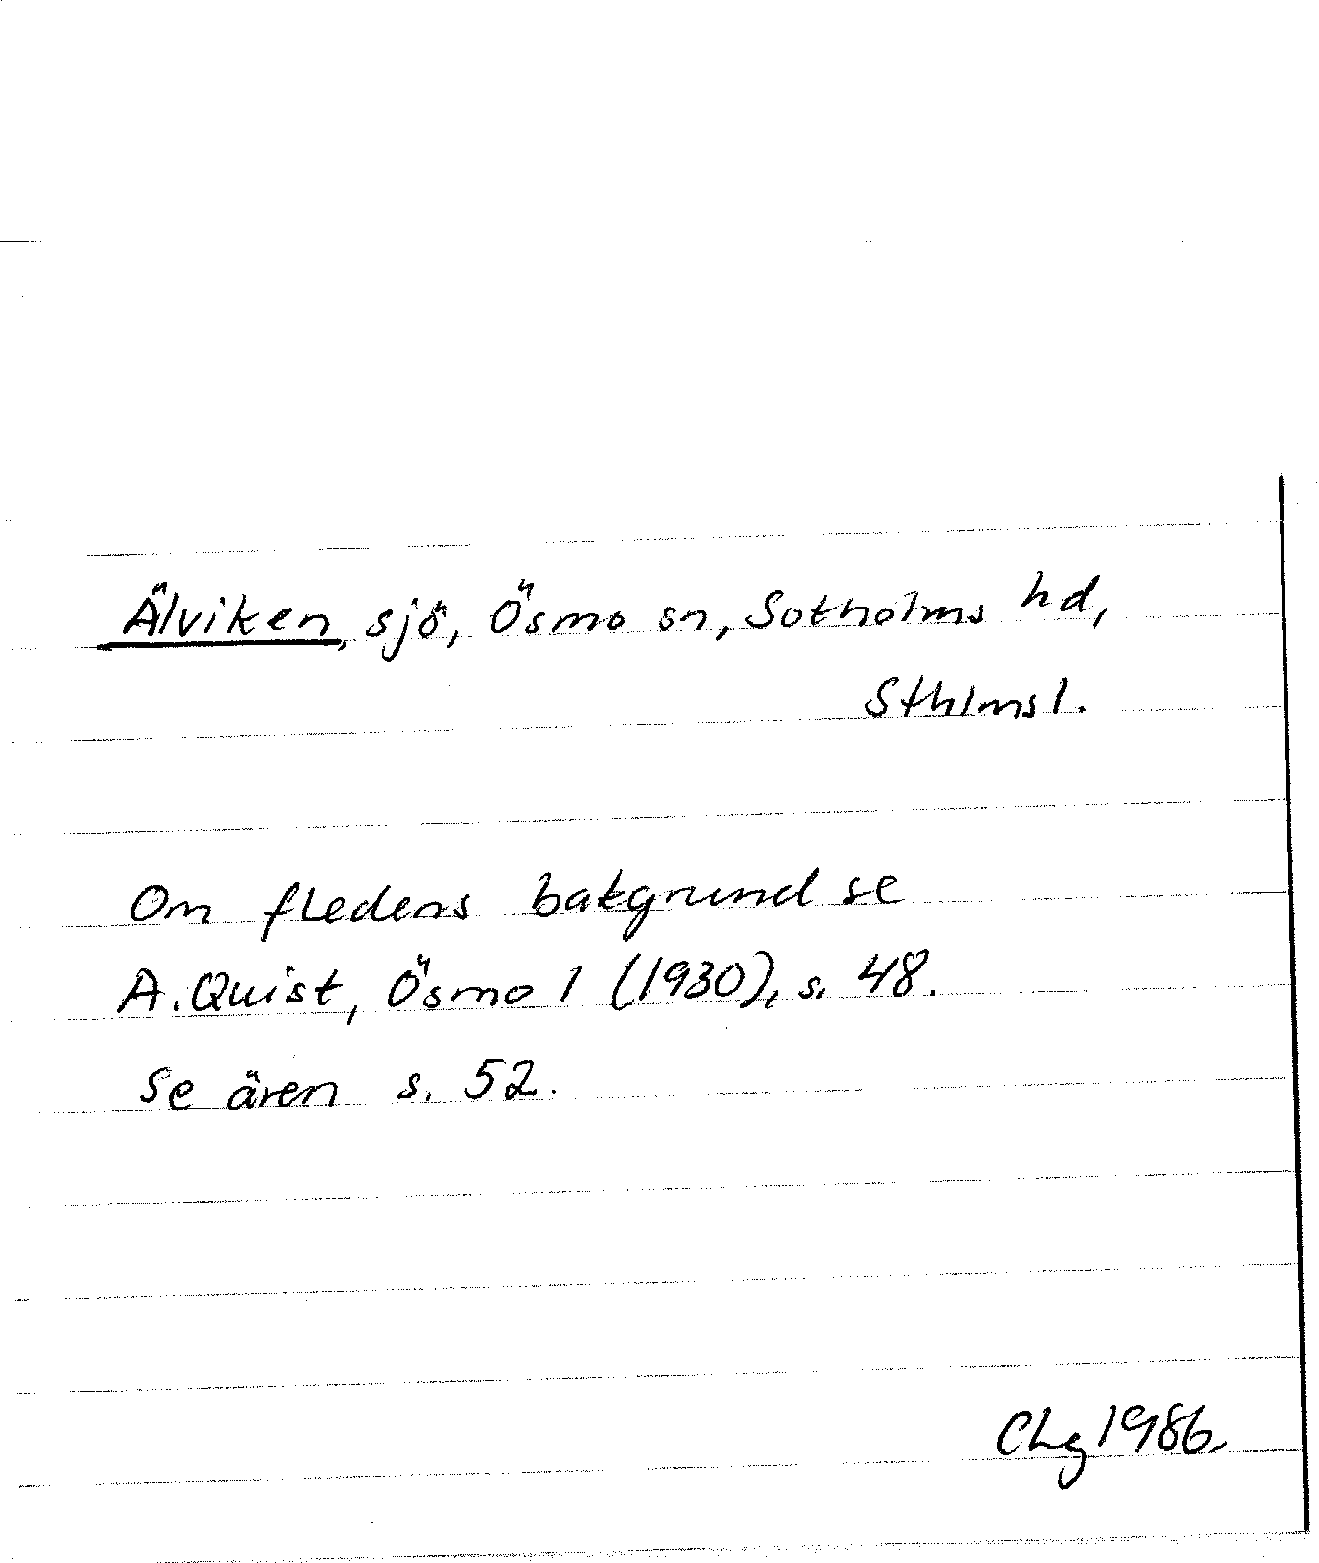 Älviken, sjö, Ösmo sn, Sotholms hd,
Sthlms l.
Om fledens bakgrund se
A. Quist, Ösmo 1 (1930), s. 48.
Se ären s. 52.
CLg 1986.